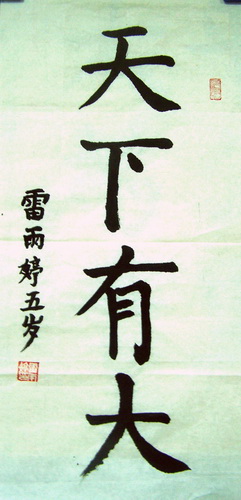 天下有大
雷雨婷五岁